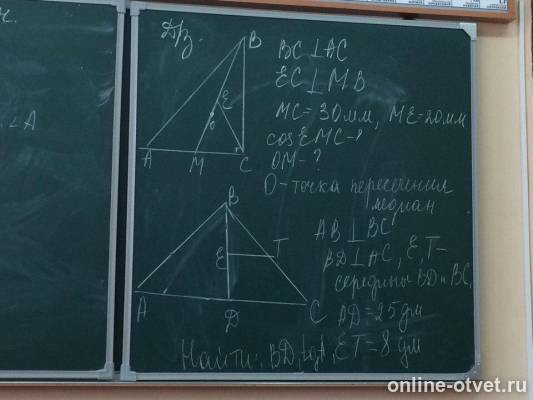 Д/з.
∠A
BC ⊥ AC
EC ⊥ MB
MC = 30 мм, ME = 20 мм
cos EMC - ?
OM - ?
O - точка пересечения
медиан
B
E
O
A
M
C
AB ⊥ BC
BD ⊥ AC, E, T -
середины BD и BC,
AD = 25 дм
Найти: BD, tgA, ET = 8 дм
B
E
T
A
D
C
online-otvet.ru